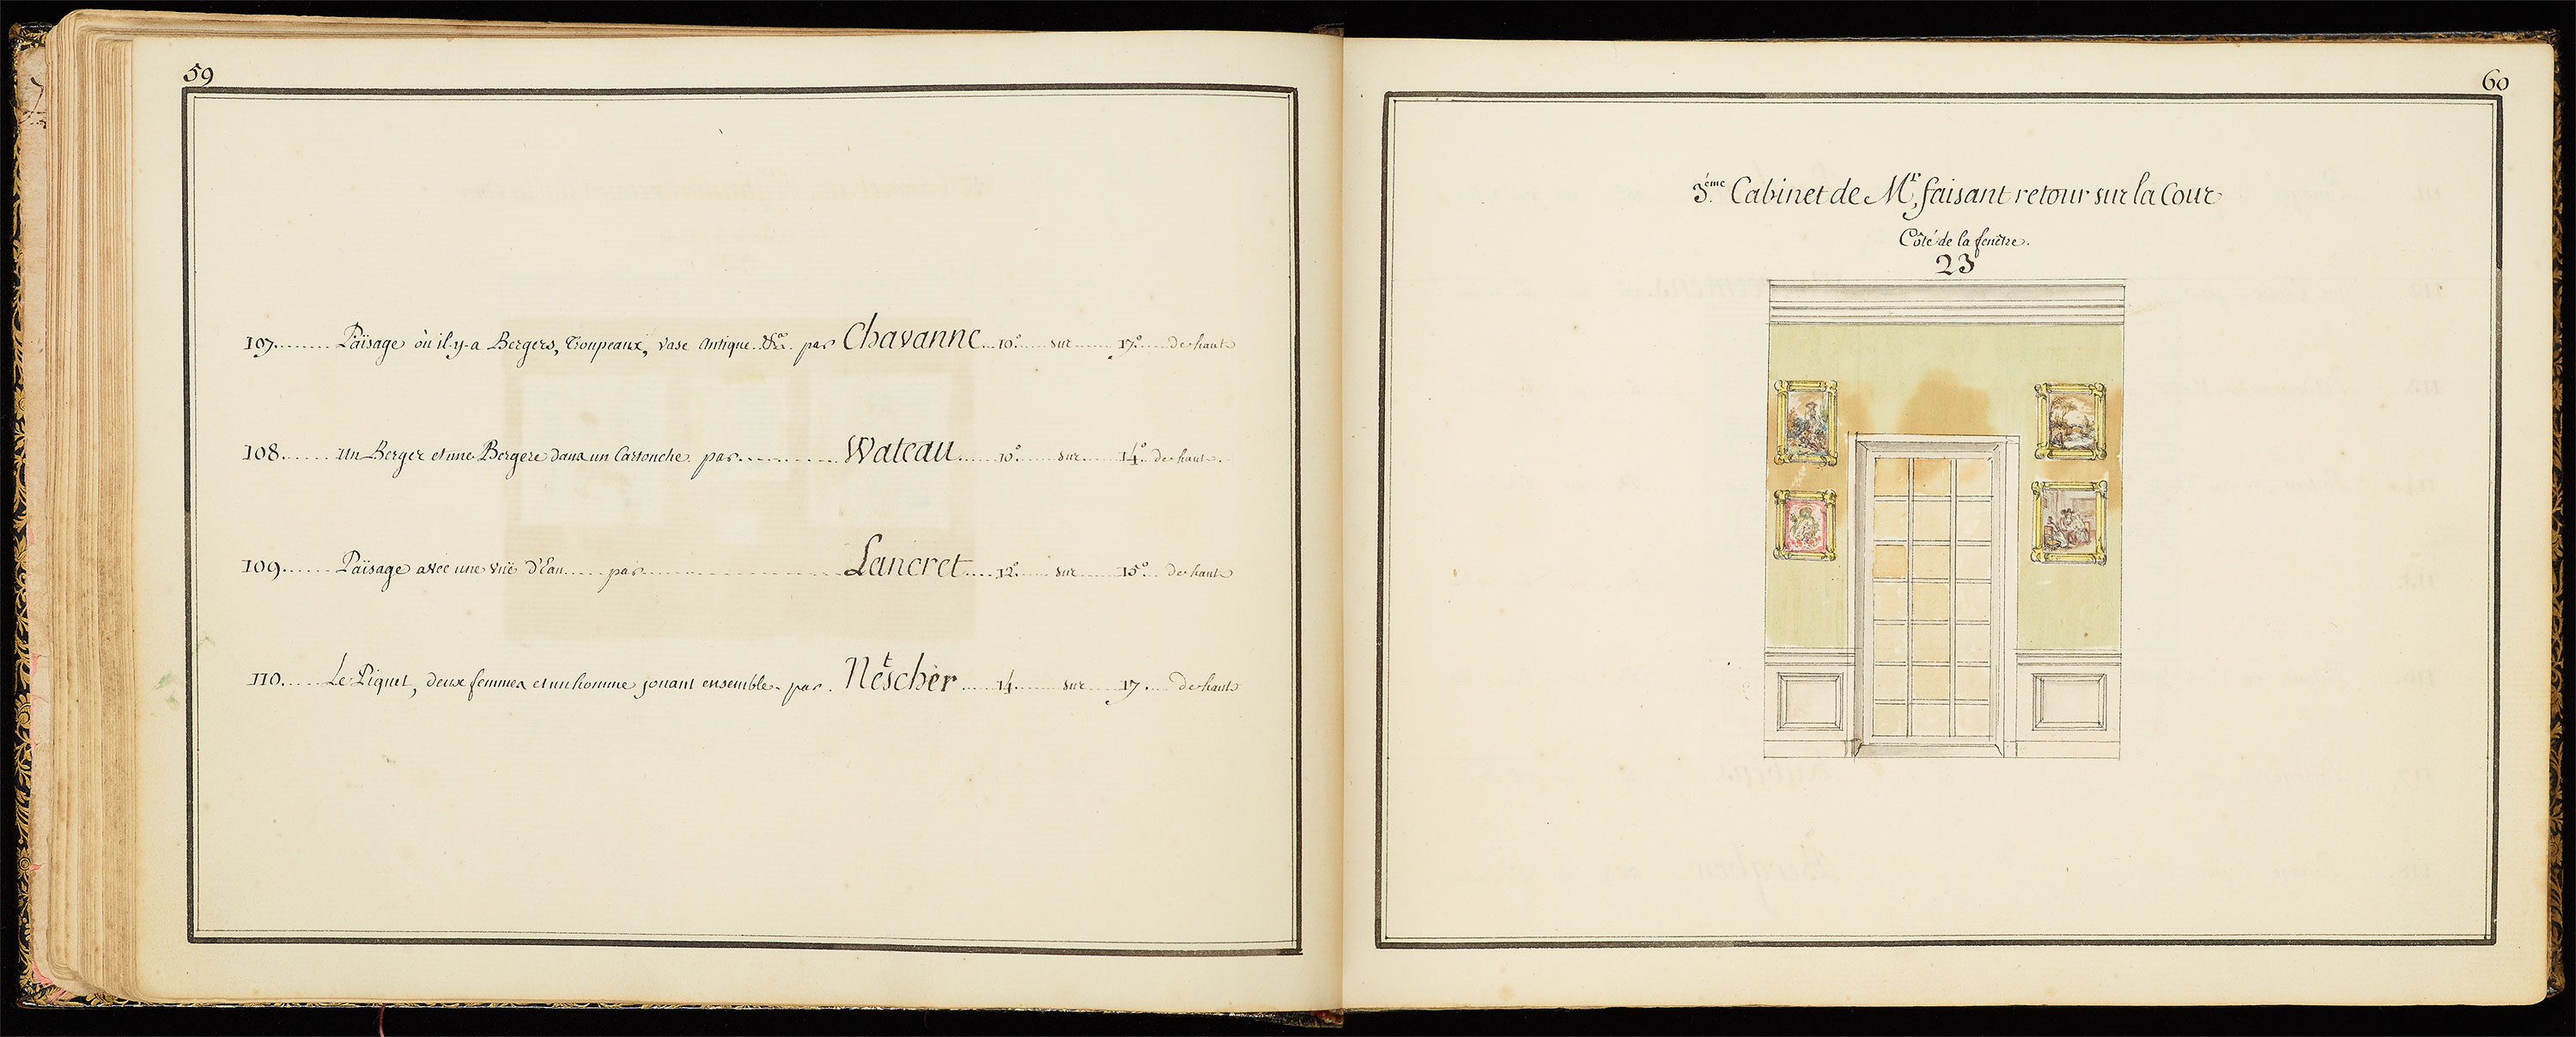 59
107........ Païsage où il-y-a Bergers, Troupeaux, vase Antique. &ca. par Chavanne... 10.° ..... sur ....... 17.° ..... de haut
108...... Un Berger et une Bergere dans un Cartouche. par ........... Wateau ..... 10.° ..... sur ..... 14.° .. de haut.
109...... Païsage avec une vuë d'Eau ..... par ..................... Lancret .... 12.° ..... sur ..... 15.° ... de haut
110..... Le Piquet, deux femmes et un homme jouant ensemble. par . Netscher ..... 14 ....... sur ..... 17 .... de haut
60
3.ème Cabinet de Mr, faisant retour sur la Cour
Côté de la fenêtre.
23